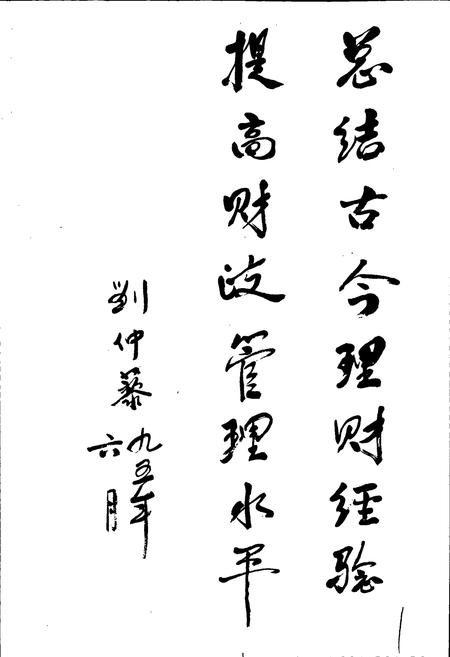 总结古今理财经验
提高财政管理水平
劉仲藜
九五年
六月